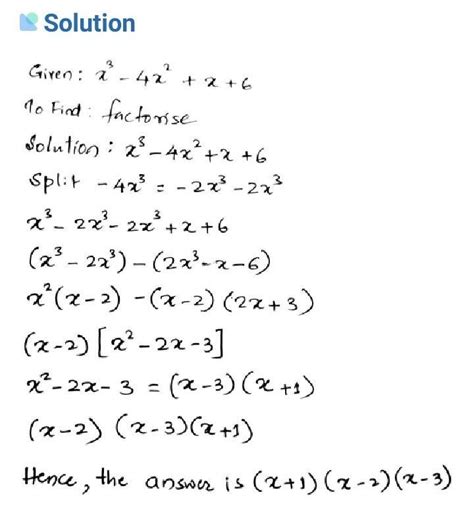 Solution
Given: x³ - 4x² + x + 6
To Find: factorise
Solution: x³ - 4x² + x + 6
Split - 4x³ = - 2x³ - 2x³
x³ - 2x³ - 2x³ + x + 6
(x³ - 2x³) - (2x³ - x - 6)
x²(x - 2) - (x - 2) (2x + 3)
(x - 2) [x² - 2x - 3]
x² - 2x - 3 = (x - 3) (x + 1)
(x - 2) (x - 3)(x + 1)
Hence, the answer is (x + 1) (x - 2)(x - 3)